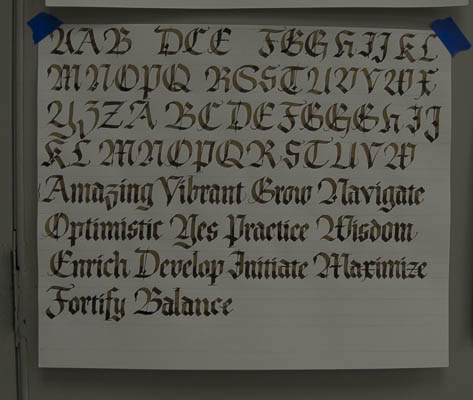 AAB DCE FGGHIJKL
MNOPQ RSSTUVVWX
YZZA BCDEFGGGHIJ
KLMNOPQRSTUVW
Amazing Vibrant Grow Navigate
Optimistic Yes Practice Wisdom
Enrich Develop Initiate Maximize
Fortify Balance